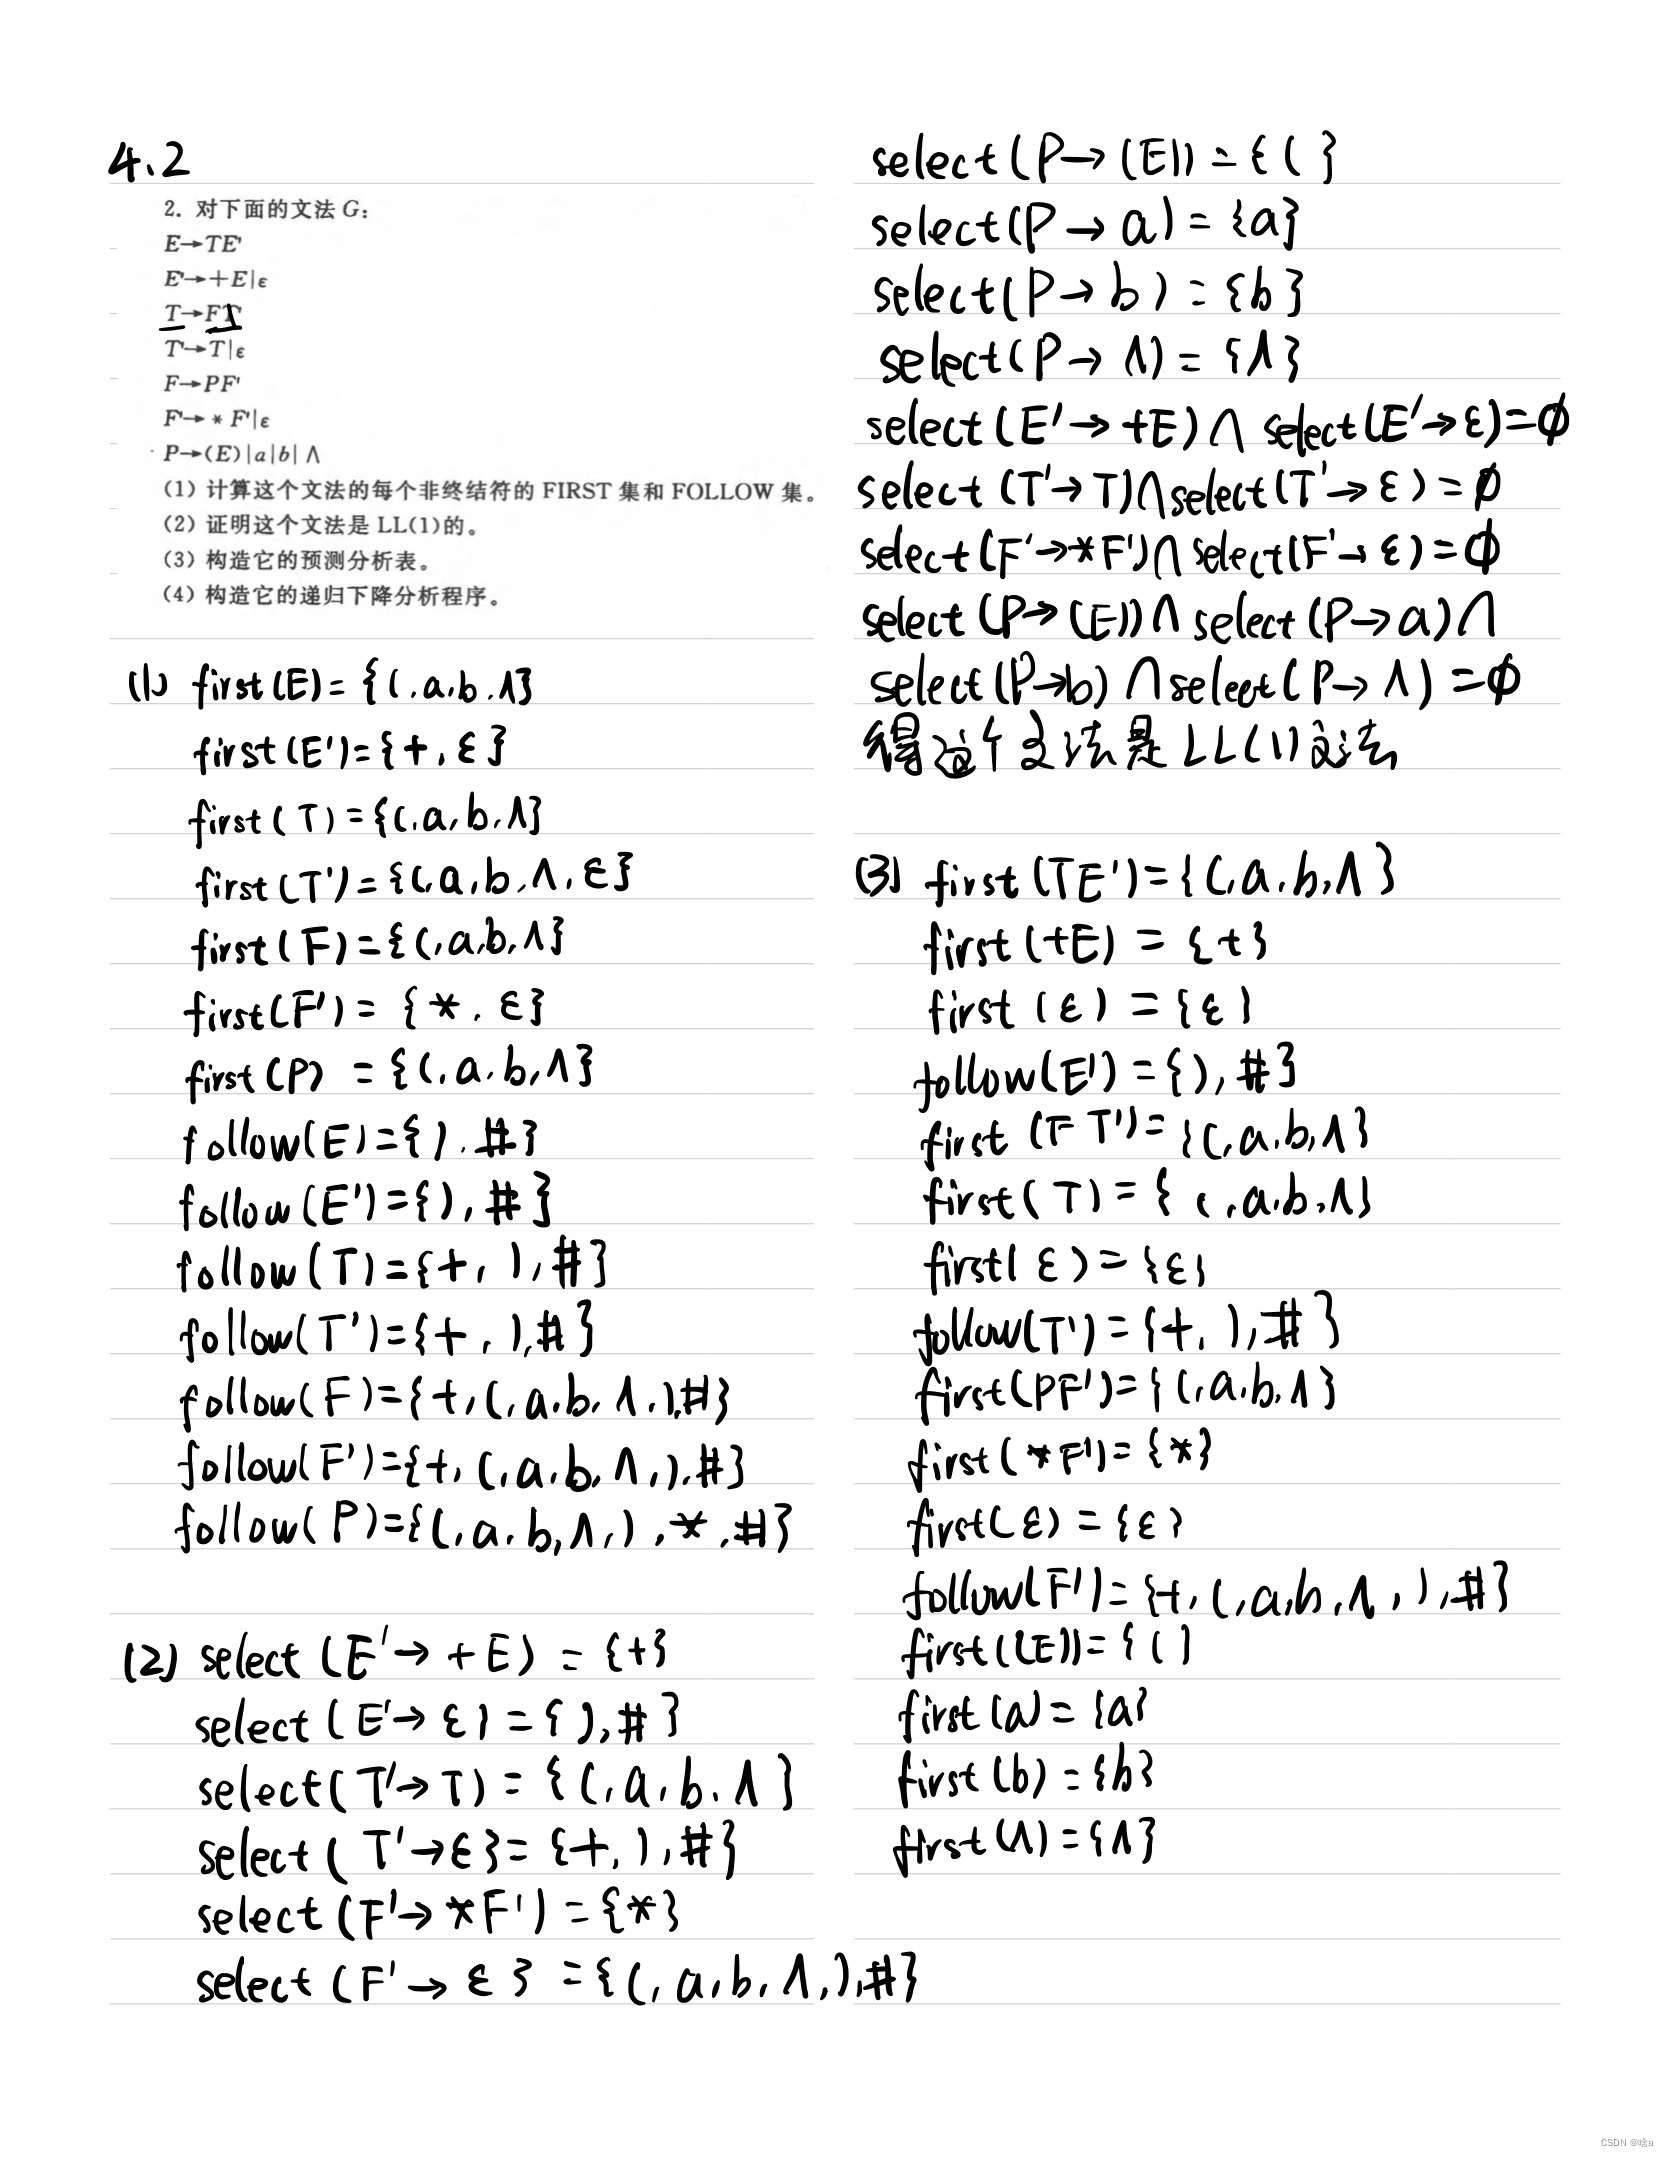 4.2
2. 对下面的文法 G:
E→TE'
E'→+E|ε
T→FT'
T'→T|ε
F→PF'
F'→*F'|ε
P→(E)|a|b|∧
(1) 计算这个文法的每个非终结符的 FIRST 集和 FOLLOW 集。
(2) 证明这个文法是 LL(1)的。
(3) 构造它的预测分析表。
(4) 构造它的递归下降分析程序。
(1) first(E)={(,a,b,∧}
first(E')={+,ε}
first(T)={(,a,b,∧}
first(T')={(,a,b,∧,ε}
first(F)={(,a,b,∧}
first(F')={*,ε}
first(P)={(,a,b,∧}
follow(E)={),#}
follow(E')={),#}
follow(T)={+,),#}
follow(T')={+,),#}
follow(F)={+,(,a,b,∧,),#}
follow(F')={+,(,a,b,∧,),#}
follow(P)={(,a,b,∧,),*,#}
(2) select(E'→+E)={+}
select(E'→ε)={),#}
select(T'→T)={(,a,b,∧}
select(T'→ε}={+,),#}
select(F'→*F')={*}
select(F'→ε}={(,a,b,∧,),#}
select(P→(E))={(}
select(P→a)={a}
select(P→b)={b}
select(P→∧)={∧}
select(E'→+E)∩select(E'→ε)=∅
select(T'→T)∩select(T'→ε)=∅
select(F'→*F')∩select(F'→ε)=∅
select(P→(E))∩select(P→a)∩
select(P→b)∩select(P→∧)=∅
得这个文法是LL(1)文法
(3) first(TE')={(,a,b,∧}
first(+E)={+}
first(ε)={ε}
follow(E')={),#}
first(FT')={(,a,b,∧}
first(T)={(,a,b,∧}
first(ε)={ε}
follow(T')={+,),#}
first(PF')={(,a,b,∧}
first(*F')={*}
first(ε)={ε}
follow(F')={+,(,a,b,∧,),#}
first((E))={(}
first(a)={a}
first(b)={b}
first(∧)={∧}
CSDN @啥a